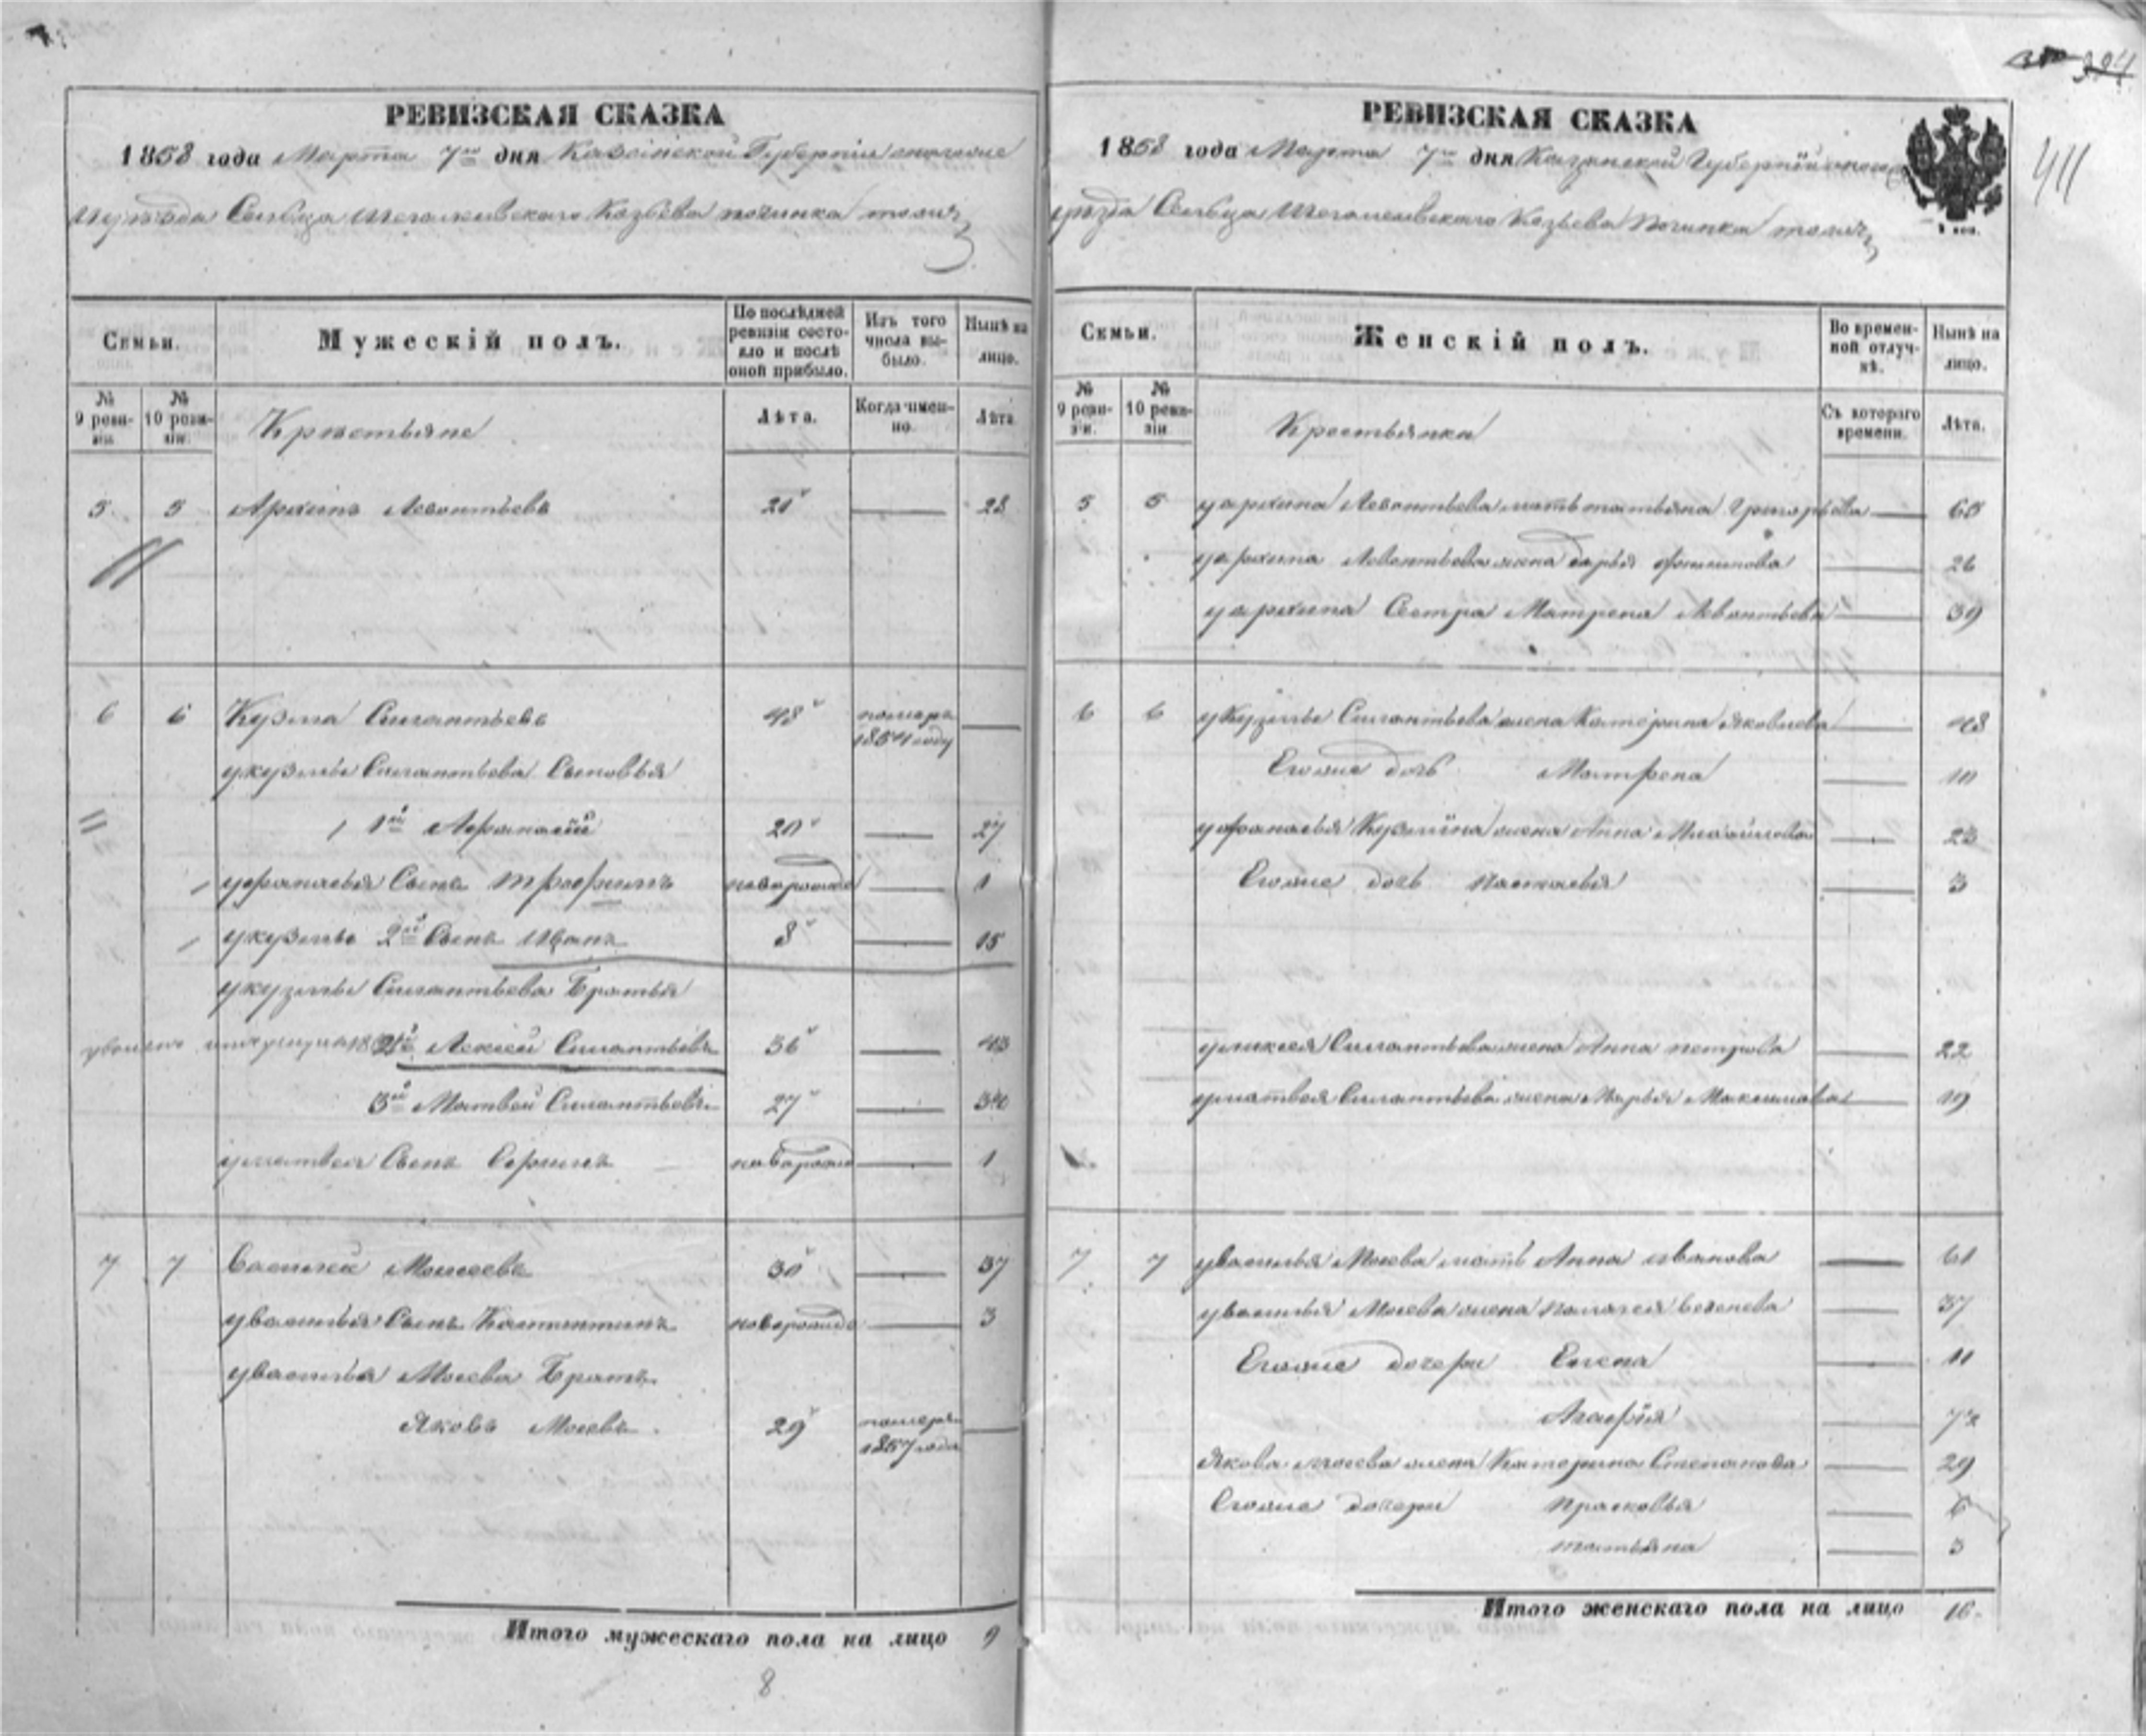 РЕВИЗСКАЯ СКАЗКА
1858 года Марта 7го дня Казанской Губернии
уезда Сельца Козьева починка тожъ
Семьи.
Мужескій полъ.
По послѣдней ревизіи состояло и послѣ оной прибыло.
Изъ того числа выбыло.
Нынѣ на лицо.
№ 9 ревизіи.
№ 10 ревизіи.
Крестьяне
Лѣта.
Когда имянно.
Лѣта
5 5 Архипъ Левонтьевъ 21 28
6 6 Кузма Силантьевъ 48 померъ 1854 году
у кузьмы Силантьева Сыновья
1й Афанасій 20 27
у фанасья Сынъ трофимъ новорожде 1
у кузьмы 2й Сынъ Иванъ 8 15
у кузьмы Силантьева Братья
2й Лексей Силантьевъ 36 43
3й Матвей Силантьевъ 27 34
у матвея Сынъ новорожд 1
7 7 Василей Моисеевъ 30 37
у василья Сынъ новорожде 3
у василья Мосева Братъ
Яковъ Мосевъ 29 померъ 1857 года
Итого мужескаго пола на лицо 9
8
324
411
РЕВИЗСКАЯ СКАЗКА
1858 года Марта 7го дня Казанской Губерніи
уезда Сельца Козьева Починка тожъ
Семьи.
Женскій полъ.
Во временной отлучкѣ.
Нынѣ на лицо.
№ 9 ревизіи.
№ 10 ревизіи.
Крестьянки
Съ котораго времени.
Лѣта.
5 5 у архипа Левонтьева мать татьяна Григорьева 65
у архипа Левонтьева жена дарья филипова 26
у архипа Сестра Матрена Левонтьева 39
6 6 у Кузьмы Силантьева жена Катерина Яковлева 48
Егоже дочь Матрена 10
у фанасья Кузмина жена Анна Михайлова 23
Егоже дочь настасья 3
у лексея Силантьева жена Анна петрова 22
у матвея Силантьева жена Марья Максимова 19
7 7 у василья Мосева мать Анна иванова 61
у василья Мосева жена палагея 37
Егоже дочери Елена 11
Агафия 7
Якова мосева жена Катерина Степанова 29
Егоже дочери прасковья 6
татьяна 3
Итого женскаго пола на лицо 16